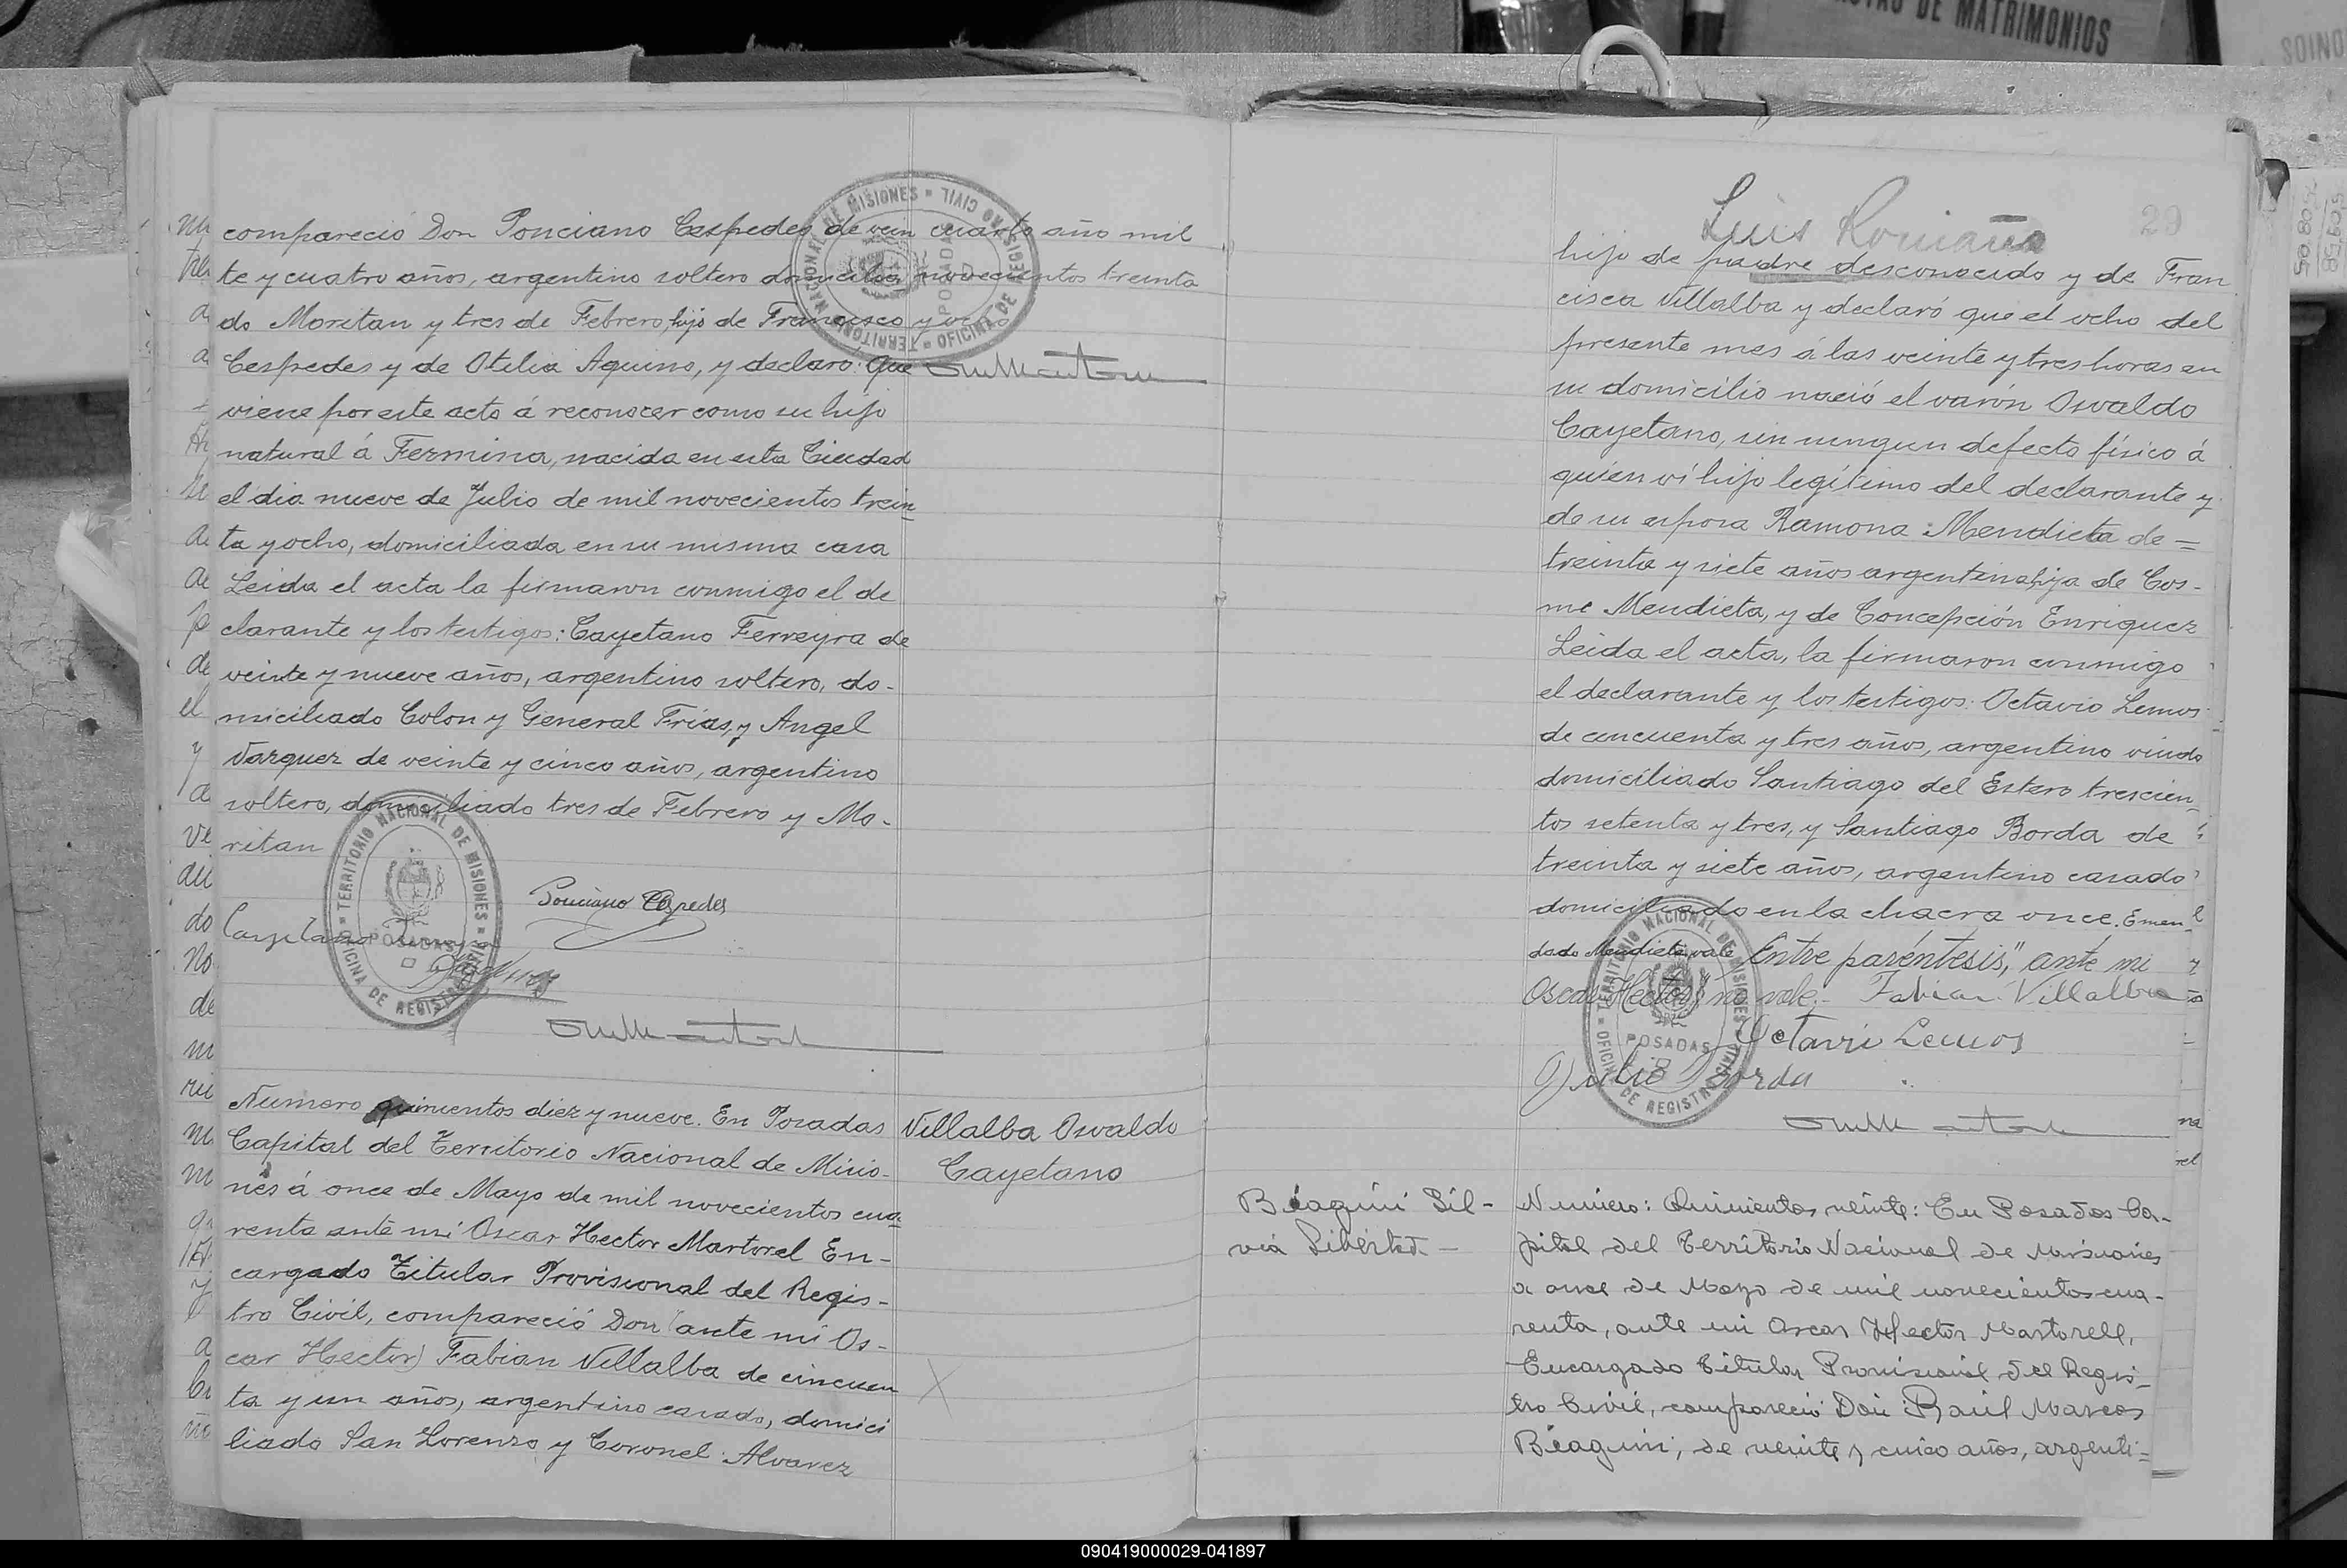 ACTAS DE MATRIMONIOS
compareció Don Ponciano Cespedes de vein
te y cuatro años, argentino soltero domicilia
do Moritan y tres de Febrero, hijo de Francisco
Cespedes y de Otilia Aquino, y declaró: Que
viene por este acto á reconocer como su hijo
natural á Fermina, nacida en esta Ciudad
el dia nueve de Julio de mil novecientos trein
ta y ocho, domiciliada en su misma casa
Leida el acta la firmaron conmigo el de
clarante y los testigos: Cayetano Ferreyra de
veinte y nueve años, argentino soltero, do-
miciliado Colon y General Frias, y Angel
Vazquez de veinte y cinco años, argentino
soltero, domiciliado tres de Febrero y Mo-
ritan
cuarto año mil
novecientos treinta
y ocho
TERRITORIO NACIONAL DE MISIONES
OFICINA DE REGISTRO CIVIL
POSADAS
Ponciano Cespedes
Cayetano
TERRITORIO NACIONAL DE MISIONES
OFICINA DE REGISTRO CIVIL
POSADAS
Numero quinientos diez y nueve. En Posadas
Capital del Territorio Nacional de Misio-
nes á once de Mayo de mil novecientos cua
renta ante mi Oscar Hector Martorel En-
cargado Titular Provisional del Regis-
tro Civil, compareció Don (ante mi Os-
car Hector) Fabian Villalba de cincuen
ta y un años, argentino casado, domici
liado San Lorenzo y Coronel Alvarez
Villalba Osvaldo
Cayetano
29
Luis
hijo de padre desconocido y de Fran
cisca Villalba y declaró que el ocho del
presente mes á las veinte y tres horas en
su domicilio nació el varón Osvaldo
Cayetano, sin ningun defecto físico á
quien ví hijo legítimo del declarante y
de su esposa Ramona Mendieta de =
treinta y siete años argentina hija de Cos-
me Mendieta, y de Concepción Enriquez
Leida el acta, la firmaron conmigo
el declarante y los testigos: Octavio Lemos
de cincuenta y tres años, argentino viudo
domiciliado Santiago del Estero trescien
tos setenta y tres, y Santiago Borda de
treinta y siete años, argentino casado
domiciliado en la chacra once. Emen
dado Mendieta, vale "Entre paréntesis," ante mi
Oscar Hector" no vale. Fabian Villalba
Octavio Lemos
Borda
TERRITORIO NACIONAL DE MISIONES
OFICINA DE REGISTRO CIVIL
POSADAS
Biagini Sil-
via Libertad. -
Numero: Quinientos veinte: En Posadas Ca-
pital del Territorio Nacional de Misiones
a once de Mayo de mil novecientos cua-
renta, ante mi Oscar Hector Martorell,
Encargado Titular Provisional del Regis-
tro Civil, compareció Don Raúl Marcos
Biagini, de veinte y cinco años, argenti=
090419000029-041897